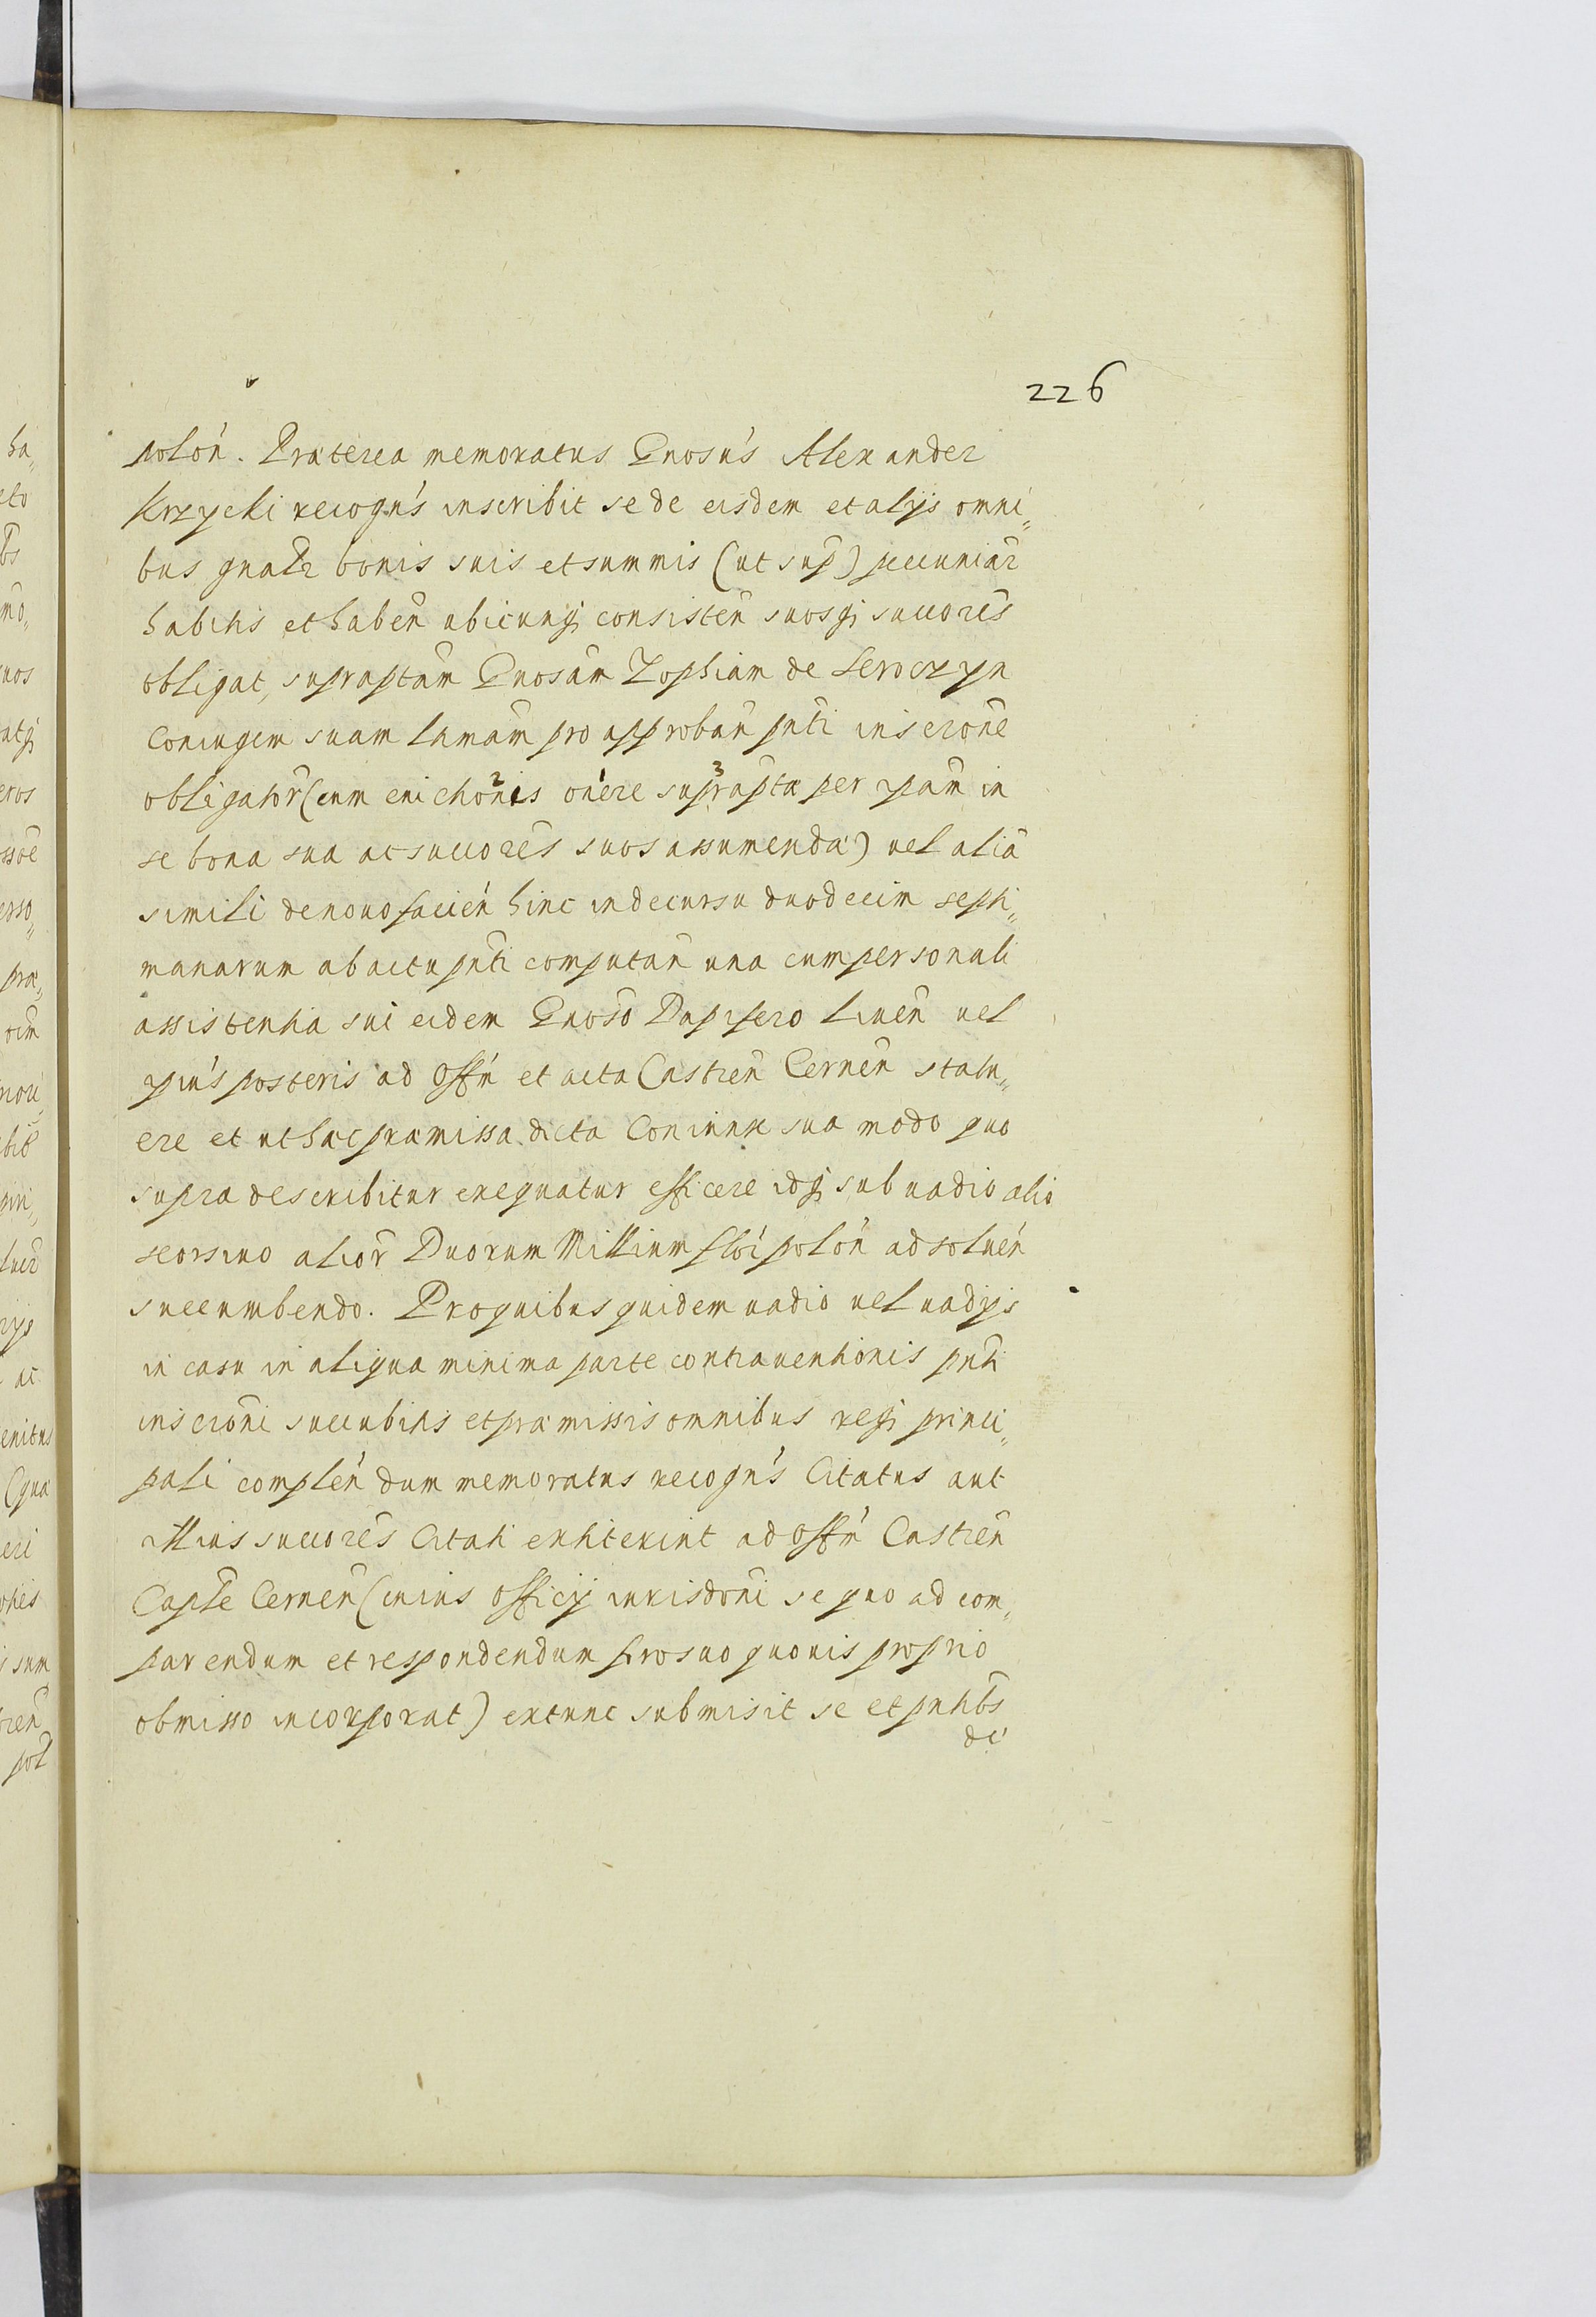 226
polon̄. Præterea memoratus Gnosūs Alexander
Krzycki recogn̄s inscribit se de eisdem et alijs omni„
bus gnalr̄ bonis suis et summis (ut sup̄) pecuniar̄
habitis et haben̄ ubicunq; consisten̄ suosq; succorēs
obligat, supraptām Gnosām Zophiam de Seroczyn
Coniugem suam l̄tmam pro approban̄ pn̄ti inscrōne
obligator̄ (cum evictionis onere supraptæ per ipām in
se bona sua ac succorēs suos assumenda) vel aliā
simili de novo facien̄ hinc in decursu duodecim septi„
manarum ab actu pn̄ti computan̄ una cum personali
assistentia sui eidem Gnoso Dapifero Liven̄ vel
ipiūs posteris ad Offm̄ et acta Castren̄ Cernen̄ statu„
ere et ut hæc præmissa dicta Coniunx sua modo quo
supra describitur exequatur efficere idq; sub vadio alio
seorsivo alior̄ Duorum Millium flor̄ polon̄ ad solven̄
succumbendo. Pro quibus quidem vadio vel vadijs
in casu in aliqua minima parte contraventionis pn̄ti
inscrōni succubitis et præmissis omnibus reqƺ princi„
pali complen̄ dum memoratus recogn̄s Citatus aut
illius succorēs Citati extiterint ad Offm̄ Castren̄
Captle Cernen̄ (cuius Officij iurisdōni se quo ad com„
parendum et respondendum foro suo quovis proprio
obmisso incorporat) extunc submisit se et pn̄tibs
de
ha„